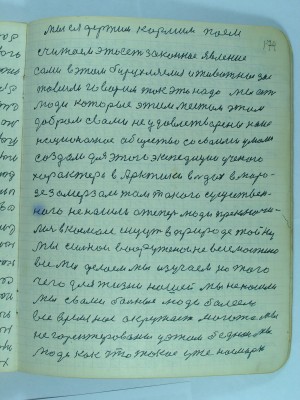 мы их держим кормим поем
179
считаем это есть законное явление
сами в этом бирухляемы и животных за
ставили говорим так это надо мы эт
люди которые этим жестом этим
добром с вами не удовлетворены наше
национальное общество со своими умами
создали для этого экспедиции ученого
характера в Арктики в льдах в моро
зе замерзали там такого существен
ного не нашли а теперь люди
в космосе ищут в природе тайну
мы силой вооруженные всемостями
все мы делаем мы изучаем но того
чего для жизни нашей мы не нашли
мы с вами больные люди болеем
все время нас окружает
не гарантированы у этом бедном мы
люди как это такое уже